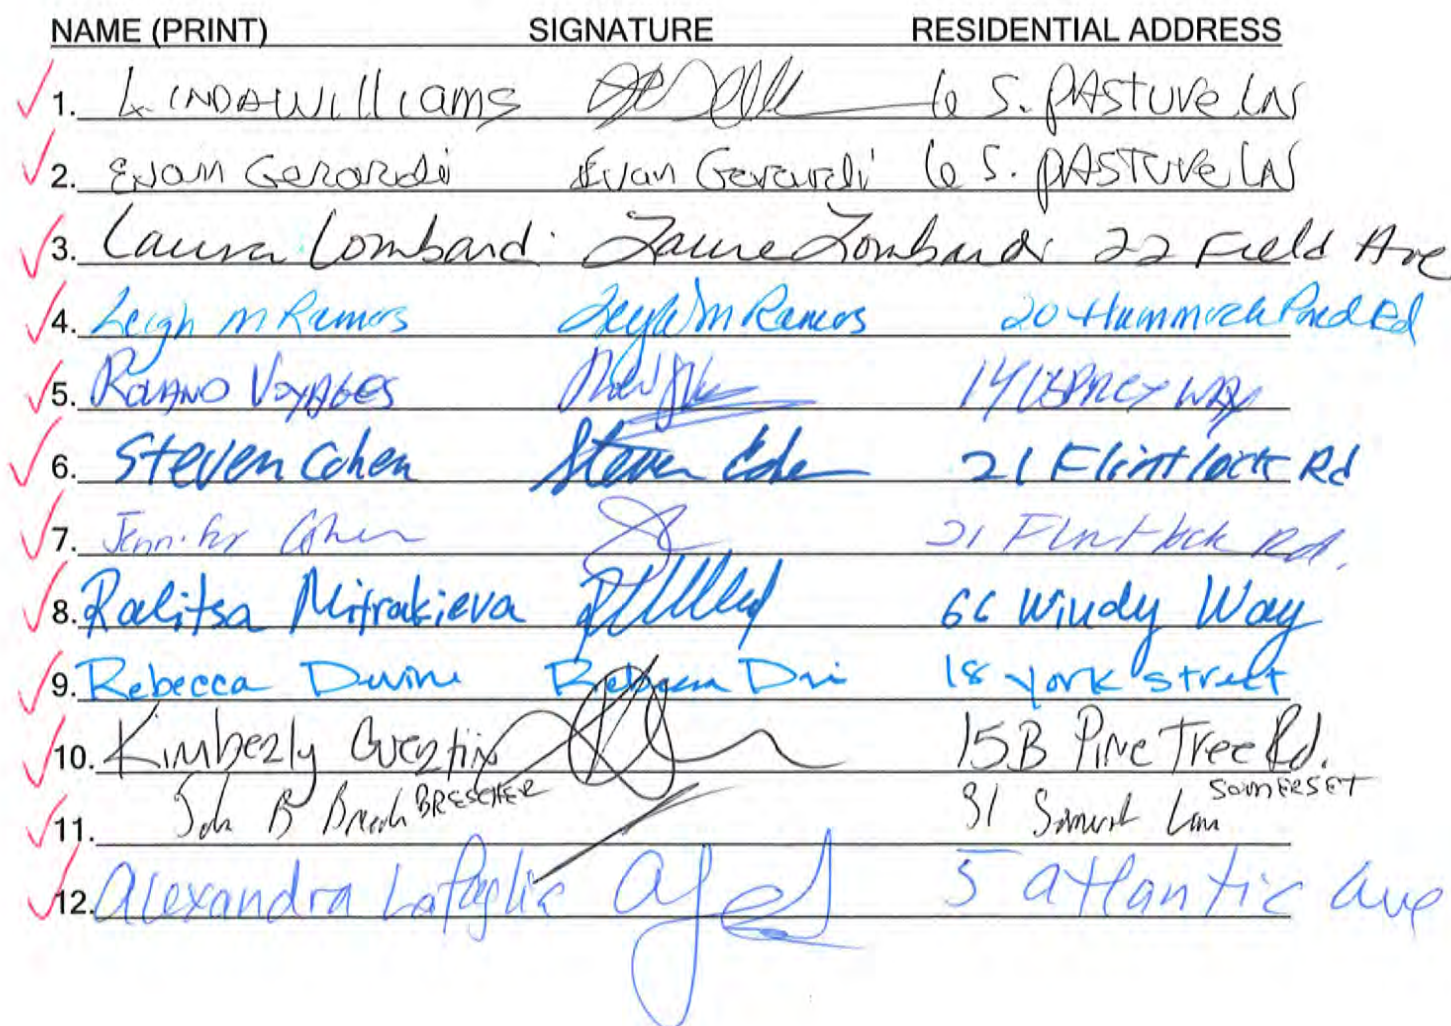 NAME (PRINT) SIGNATURE RESIDENTIAL ADDRESS
1. LINDA Williams 6 S. PAStUre LN
2. Evan Gerardi Evan Gerardi 6 S. PASTUre LN
3. Laura Lombardi Laura Lombardi 22 Field Ave
4. Leigh M Ramos Leigh M Ramos 20 Hummock Pond Rd
5. VOYAGES 14 OSPREY WAY
6. Steven Cohen Steven Cohen 21 Flintlock Rd
7. Jennifer Cohen 21 Flintlock Rd.
8. Ralitsa Mitrakieva 6C Windy Way
9. Rebecca Devine 18 York Street
10. Kimberly Guertin 15B Pine Tree Rd.
BRESCHER SOMERSET
11. John B 31 Somerset Lane
12. Alexandra 5 atlantic ave